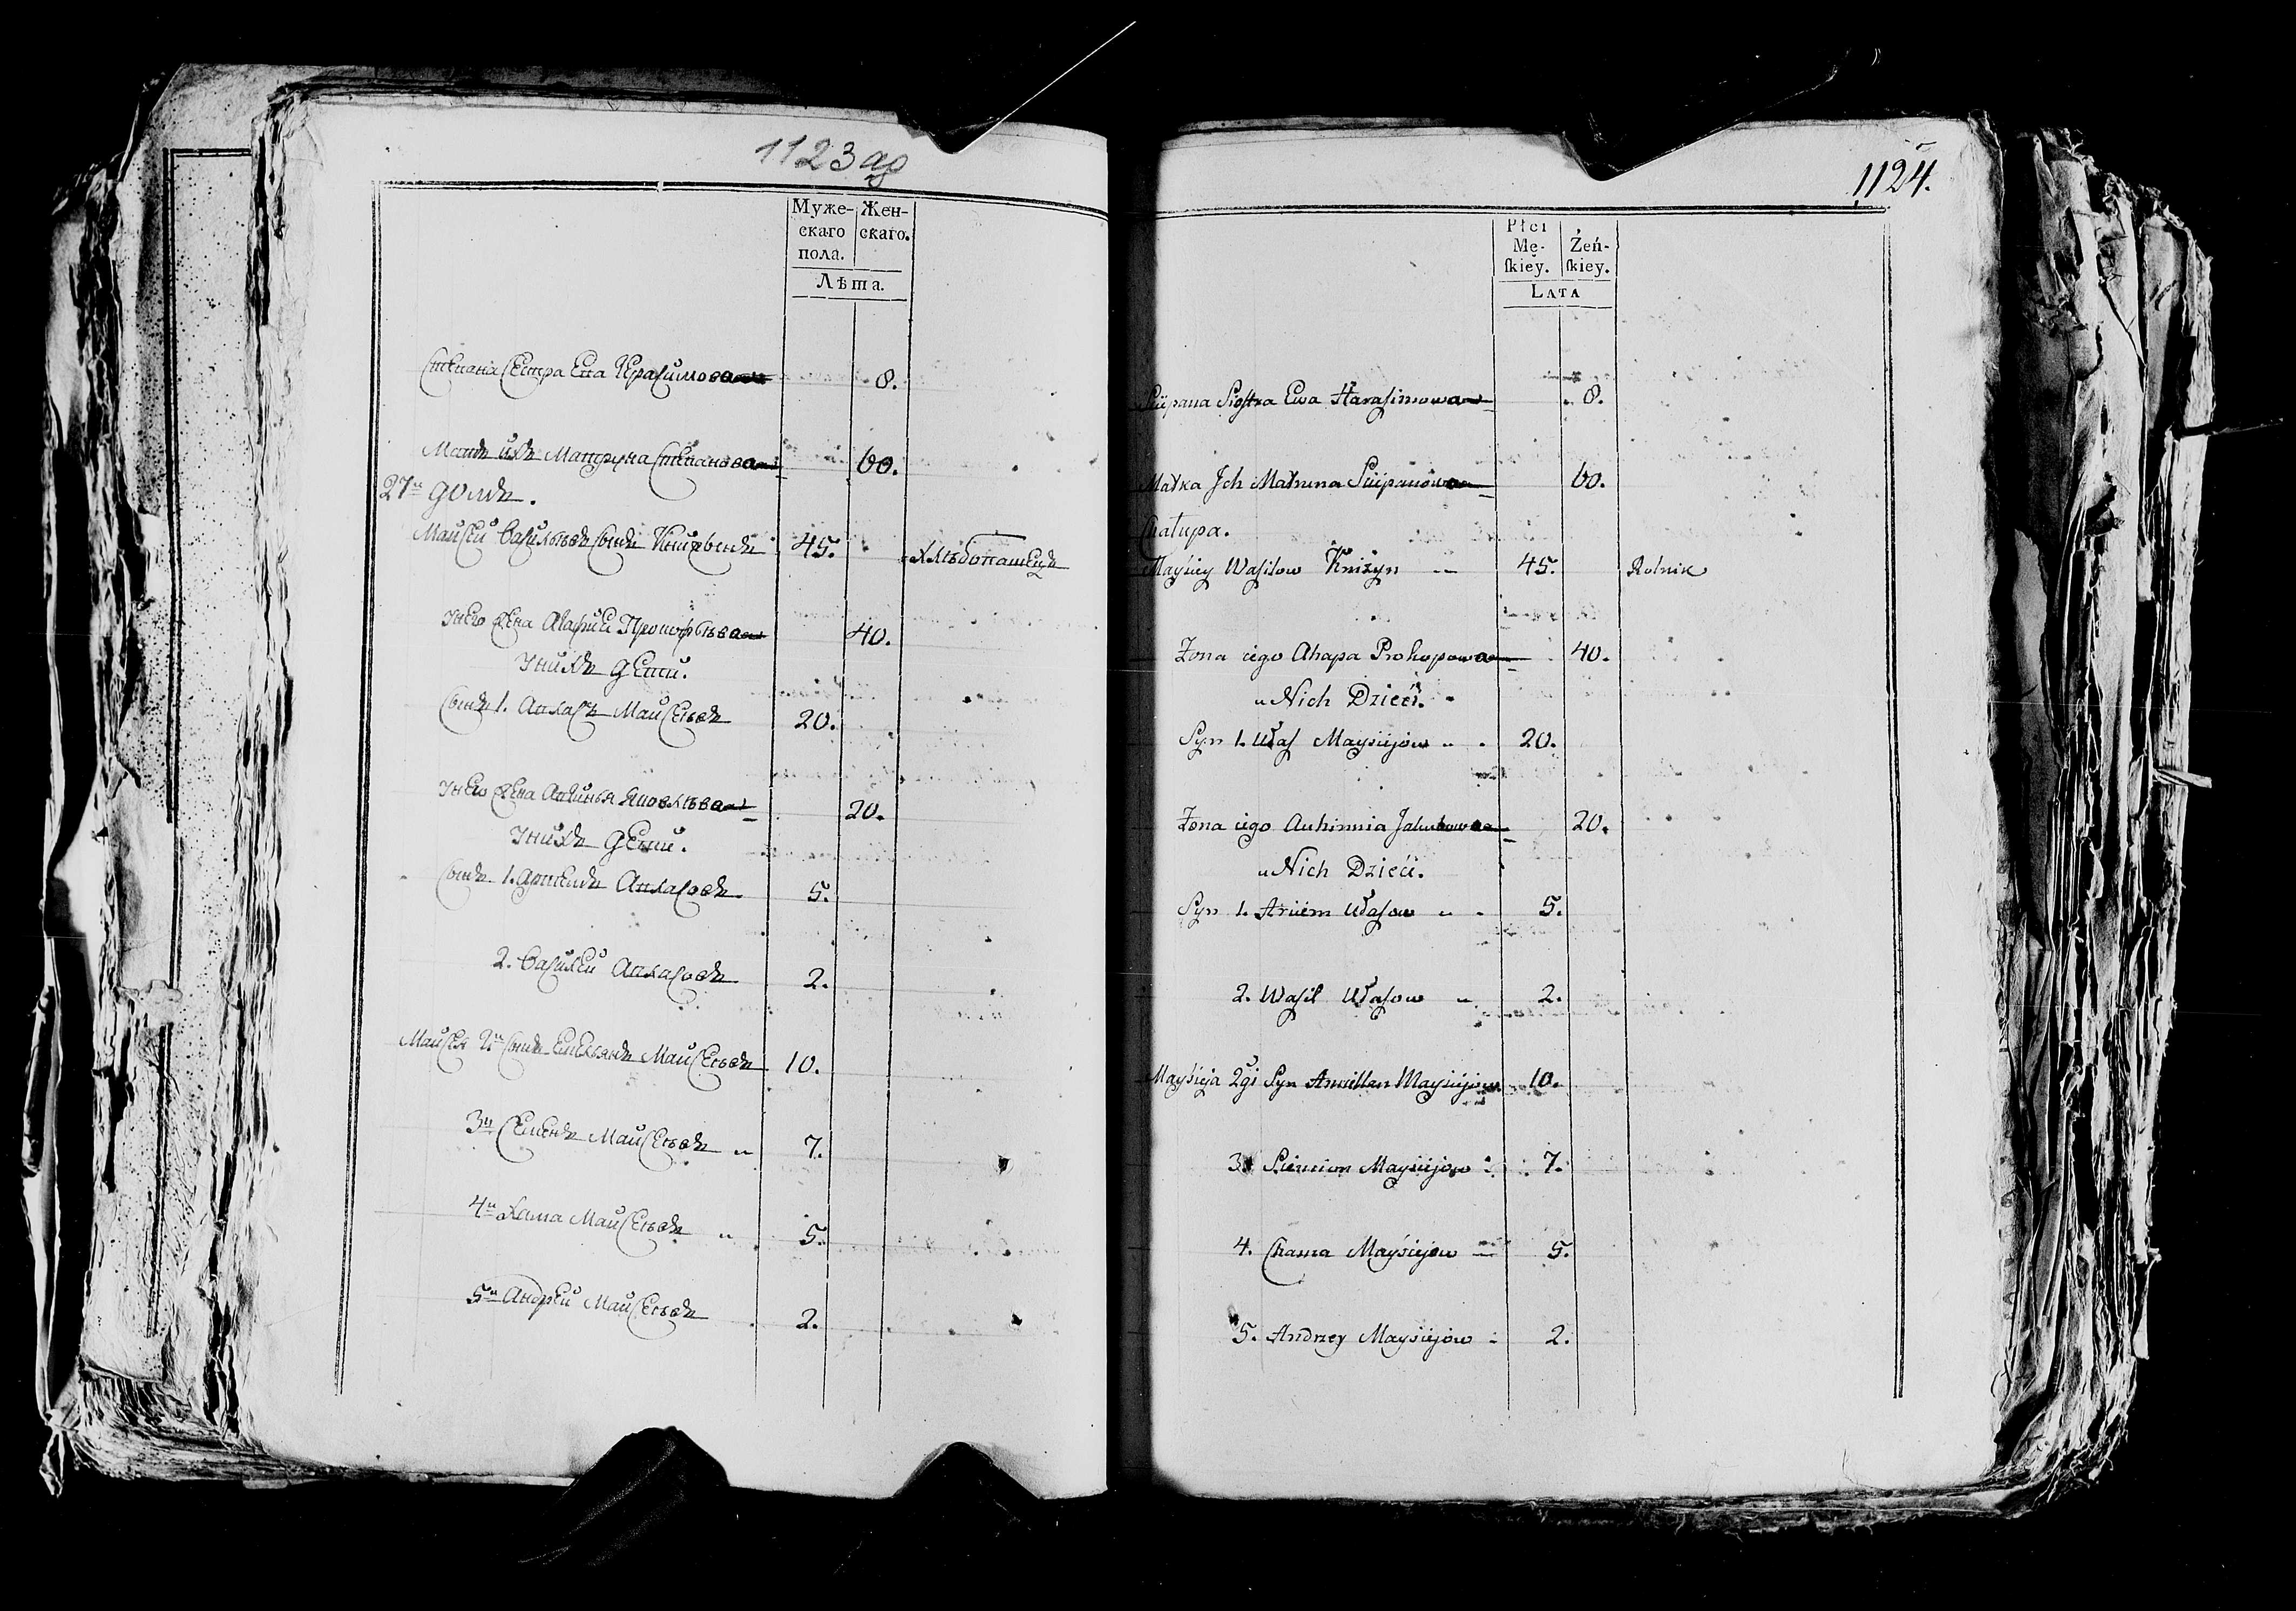 1123 об
Муже- Жен-
скаго скаго.
пола.
Лѣта.
Степана сестра Ева Герасимова 8.
Мать ихъ Матруна Степанова 60.
27й домъ.
Майсей Васильевъ сынъ 45. хлѣбопашецъ
У него жена Агафия Прокофьева 40.
У нихъ дети.
Сынъ 1. Майсеевъ 20.
У него жена Яковлева 20.
У нихъ дети.
Сынъ 1. Артемъ 5.
2. Василей 2.
Майсея 2й сынъ Емельянъ Майсеевъ 10.
3й Семенъ Майсеевъ 7.
4й Хама Майсеевъ 5.
5й Андрей Майсеевъ 2.
1124.
Płci
Mę- Żeń-
ſkiey. ſkiey.
LATA
Sciepana Siostra Ewa Harasimowa 8.
Matka Jch Matruna Sciepanowa 60.
Chałupa.
Mayśiey Wasilow Kniżyn 45. Rolnik
Żona iego Ahapa Prokopowa 40.
u Nich Dzieci.
Syn 1. Ułas Mayśiejow 20.
Żona iego Auhinnia Jakubowa 20.
u Nich Dzieci.
Syn 1. Arciem Ułasow 5.
2. Wasil Ułasow 2.
Mayśieja 2gi Syn Amillan Mayśiejow 10.
3. Siemion Mayśiejow 7.
4. Chama Mayśiejow 5.
5. Andrzey Mayśiejow 2.